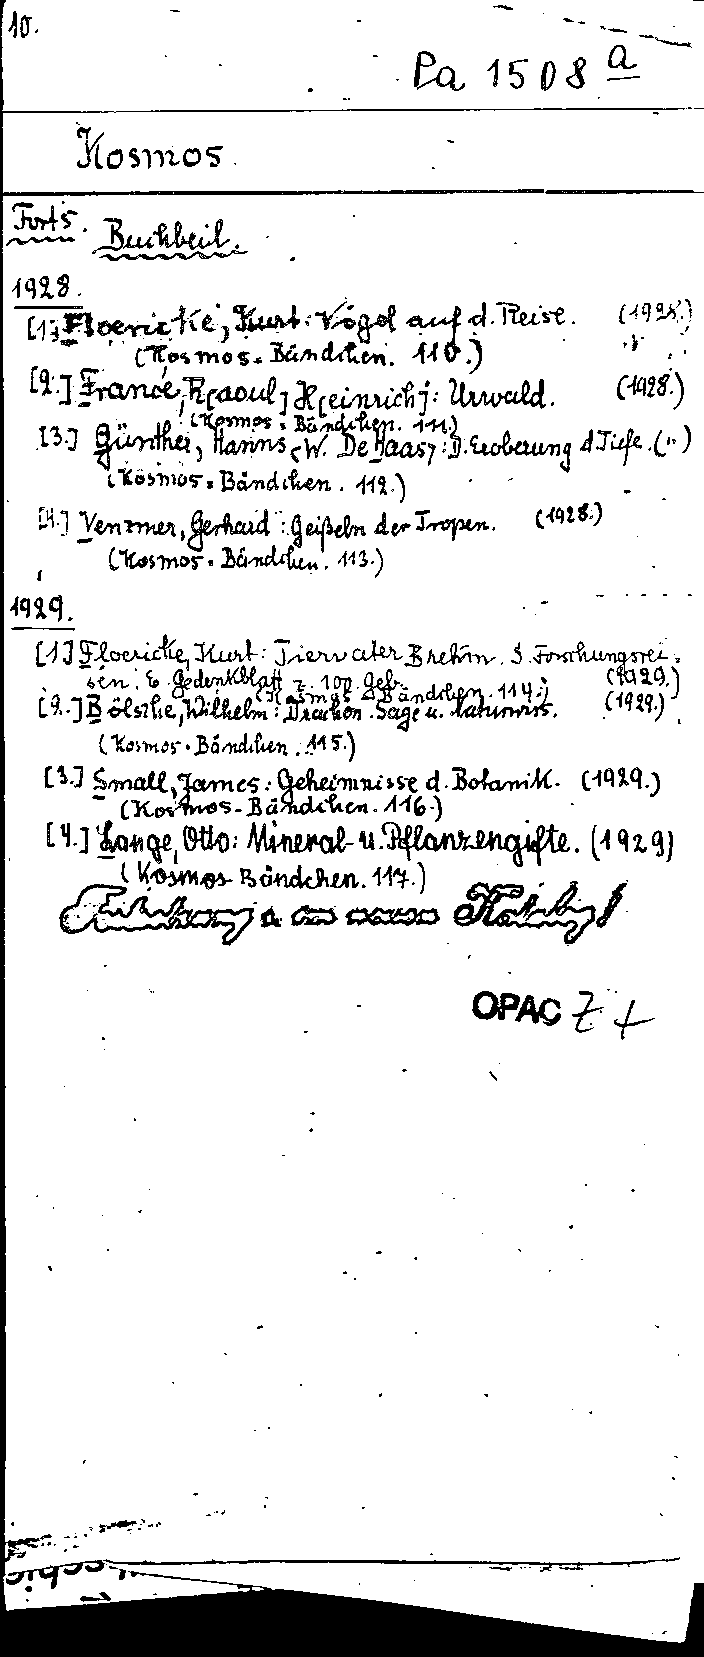 10.
Pa 1508 a
Kosmos.
Forts. Buchbeil.
1928.
[1.] Floericke, Kurt: Vögel auf d. Reise. (1928.)
(Kosmos-Bändchen. 110.)
[2.] Francé, R[aoul] H[einrich]: Urwald. (1928.)
(Kosmos-Bändchen. 111.)
[3.] Günther, Hanns <W. De Haas>: D. Eroberung d Tiefe. (")
(Kosmos-Bändchen. 112.)
[4.] Venzmer, Gerhard: Geißeln der Tropen. (1928.)
(Kosmos-Bändchen. 113.)
1929.
[1] Floericke, Kurt: Tiervater Brehm. S. Forschungsrei-
sen. E. Gedenkblatt z. 100. Geb. (1929.)
(Kosmos-Bändchen. 114.)
[2.] Bölsche, Wilhelm: Drachen. Sage u. Naturwiss. (1929.)
(Kosmos-Bändchen. 115.)
[3.] Small, James: Geheimnisse d. Botanik. (1929.)
(Kosmos-Bändchen. 116.)
[4.] Lange, Otto: Mineral- u. Pflanzengifte. (1929)
(Kosmos-Bändchen. 117.)
OPAC Z +